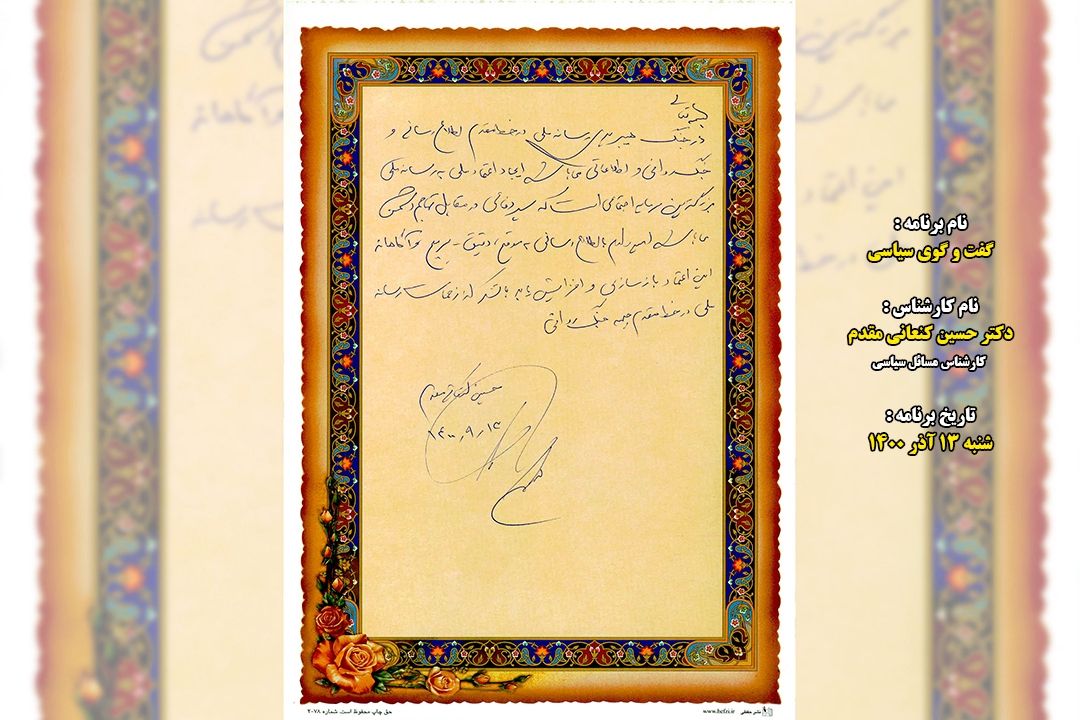 بسمه تعالی
در جنگ هیبریدی رسانه ملی در خط مقدم اطلاع رسانی و
جنگ روانی و اطلاعاتی ایجاد اعتماد ملی به رسانه ملی
بزرگترین سرمایه اجتماعی است که سپر دفاعی در مقابل تهاجم دشمن
امیدوارم با اطلاع رسانی به موقع، دقیق - سریع آگاهانه
این اعتماد بازسازی و افزایش یابد با تشکر از زحمات رسانه
ملی در خط مقدم جبهه جنگ روانی
حسین کنعانی مقدم
۱۴۰۰،۹،۱۳
نام برنامه :
گفت و گوی سیاسی
نام کارشناس :
دکتر حسین کنعانی مقدم
کارشناس مسائل سیاسی
تاریخ برنامه :
شنبه ۱۳ آذر ۱۴۰۰
حق چاپ محفوظ است. شماره ۲۰۷۸
www.hefzi.ir نشر حفظی